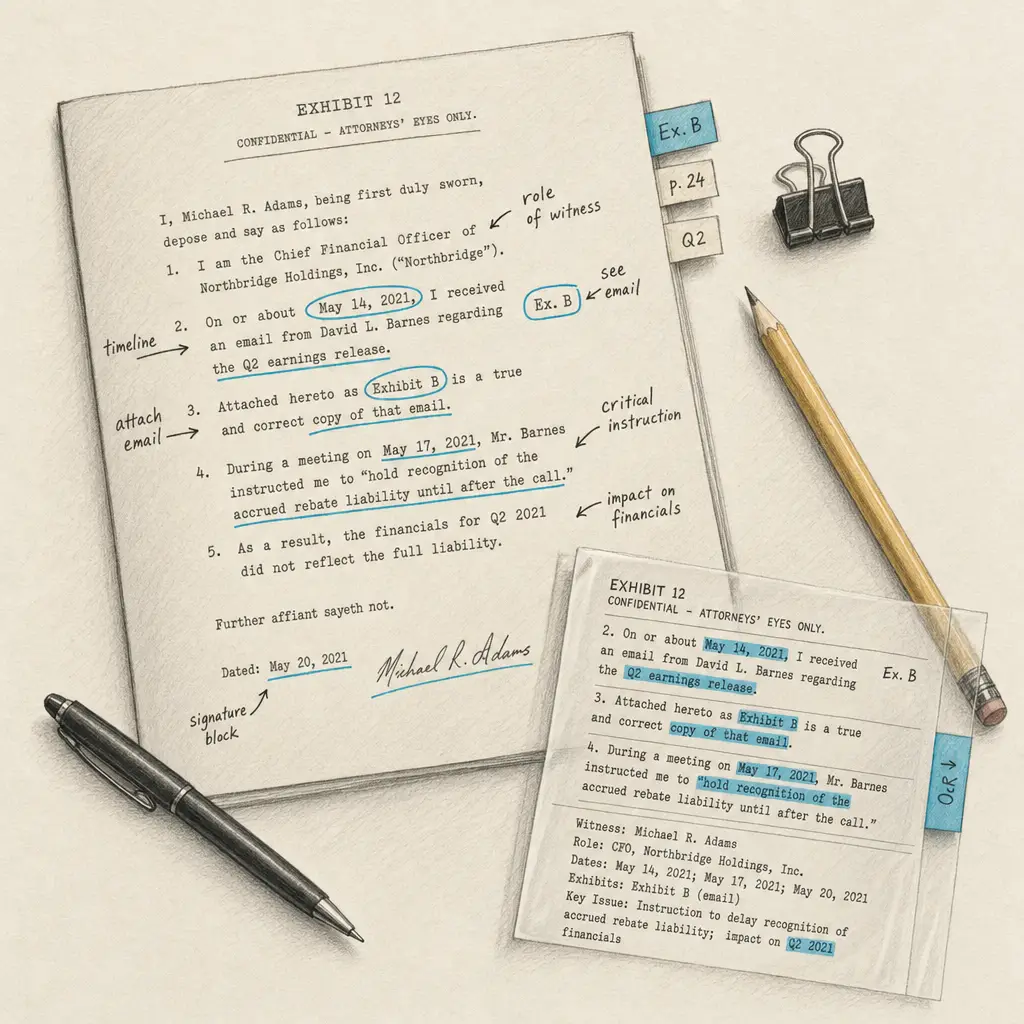 EXHIBIT 12
CONFIDENTIAL – ATTORNEYS' EYES ONLY.
I, Michael R. Adams, being first duly sworn,
depose and say as follows:
1. I am the Chief Financial Officer of
Northbridge Holdings, Inc. (“Northbridge”).
role
of witness
2. On or about May 14, 2021, I received
an email from David L. Barnes regarding
the Q2 earnings release.
timeline
Ex. B
see
email
3. Attached hereto as Exhibit B is a true
and correct copy of that email.
attach
email
4. During a meeting on May 17, 2021, Mr. Barnes
instructed me to “hold recognition of the
accrued rebate liability until after the call.”
Critical
instruction
5. As a result, the financials for Q2 2021
did not reflect the full liability.
impact on
financials
Further affiant sayeth not.
Dated: May 20, 2021
Michael R. Adams
signature
block
Ex. B
p. 24
Q2
EXHIBIT 12
CONFIDENTIAL – ATTORNEYS' EYES ONLY.
2. On or about May 14, 2021, I received
an email from David L. Barnes regarding
the Q2 earnings release.
Ex. B
3. Attached hereto as Exhibit B is a true
and correct copy of that email.
4. During a meeting on May 17, 2021, Mr. Barnes
instructed me to “hold recognition of the
accrued rebate liability until after the call.”
Witness: Michael R. Adams
Role: CFO, Northbridge Holdings, Inc.
Dates: May 14, 2021; May 17, 2021; May 20, 2021
Exhibits: Exhibit B (email)
Key Issue: Instruction to delay recognition of
accrued rebate liability; impact on Q2 2021
financials
OcR